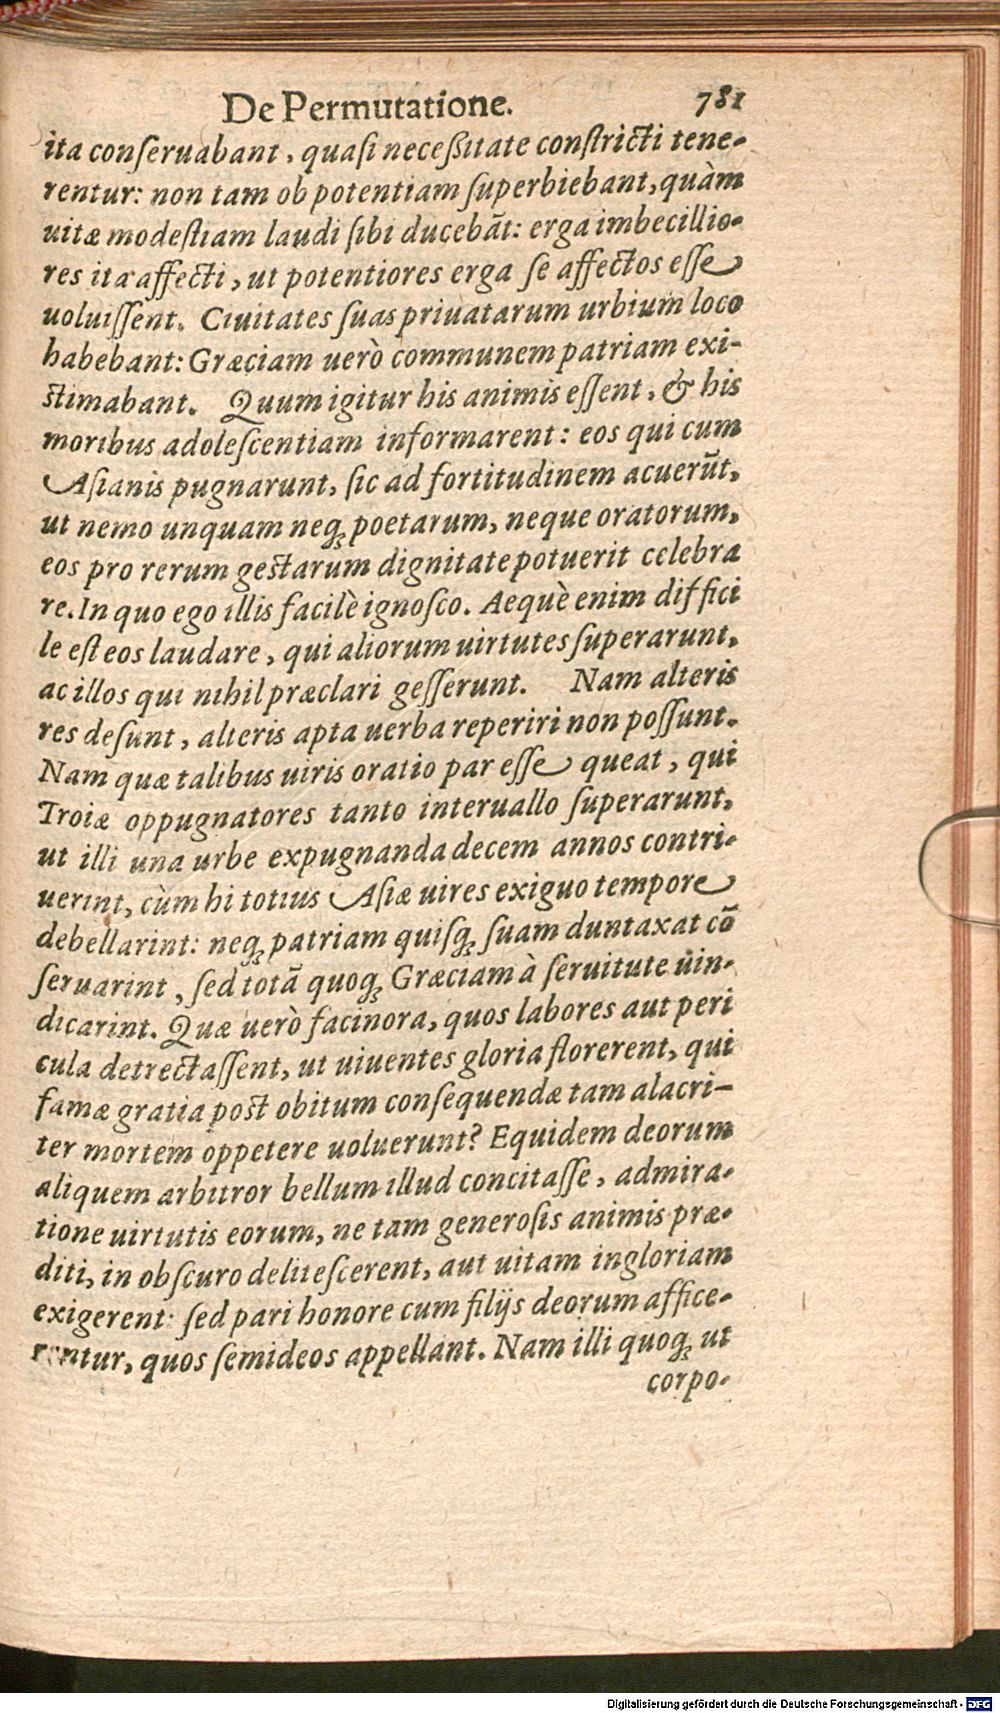 De Permutatione. 781
ita conſeruabant, quaſi neceſsitate conſtricti tene-
rentur: non tam ob potentiam ſuperbiebant, quàm
uitæ modeſtiam laudi ſibi ducebãt: erga imbecillio-
res ita affecti, ut potentiores erga ſe affectos eſſe
uoluiſſent. Ciuitates ſuas priuatarum urbium loco
habebant: Græciam uerò communem patriam exi-
ſtimabant. Quum igitur his animis eſſent, & his
moribus adoleſcentiam informarent: eos qui cum
Aſianis pugnarunt, ſic ad fortitudinem acuerũt,
ut nemo unquam neqꝫ poetarum, neque oratorum,
eos pro rerum geſtarum dignitate potuerit celebra
re. In quo ego illis facilè ignoſco. Aequè enim diffici
le eſt eos laudare, qui aliorum uirtutes ſuperarunt,
ac illos qui nihil præclari geſſerunt. Nam alteris
res deſunt, alteris apta uerba reperiri non poſſunt.
Nam quæ talibus uiris oratio par eſſe queat, qui
Troiæ oppugnatores tanto interuallo ſuperarunt,
ut illi una urbe expugnanda decem annos contri-
uerint, cùm hi totius Aſiæ uires exiguo tempore
debellarint: neqꝫ patriam quiſqꝫ ſuam duntaxat cõ
ſeruarint, ſed totã quoqꝫ Græciam à ſeruitute uin-
dicarint. Quæ uerò facinora, quos labores aut peri
cula detrectaſſent, ut uiuentes gloria florerent, qui
famæ gratia poſt obitum conſequendæ tam alacri-
ter mortem oppetere uoluerunt? Equidem deorum
aliquem arbitror bellum illud concitaſſe, admira-
tione uirtutis eorum, ne tam generoſis animis præ-
diti, in obſcuro deliteſcerent, aut uitam ingloriam
exigerent: ſed pari honore cum filijs deorum affice-
rentur, quos ſemideos appellant. Nam illi quoqꝫ ut
corpo-
Digitalisierung gefördert durch die Deutsche Forschungsgemeinschaft - DFG